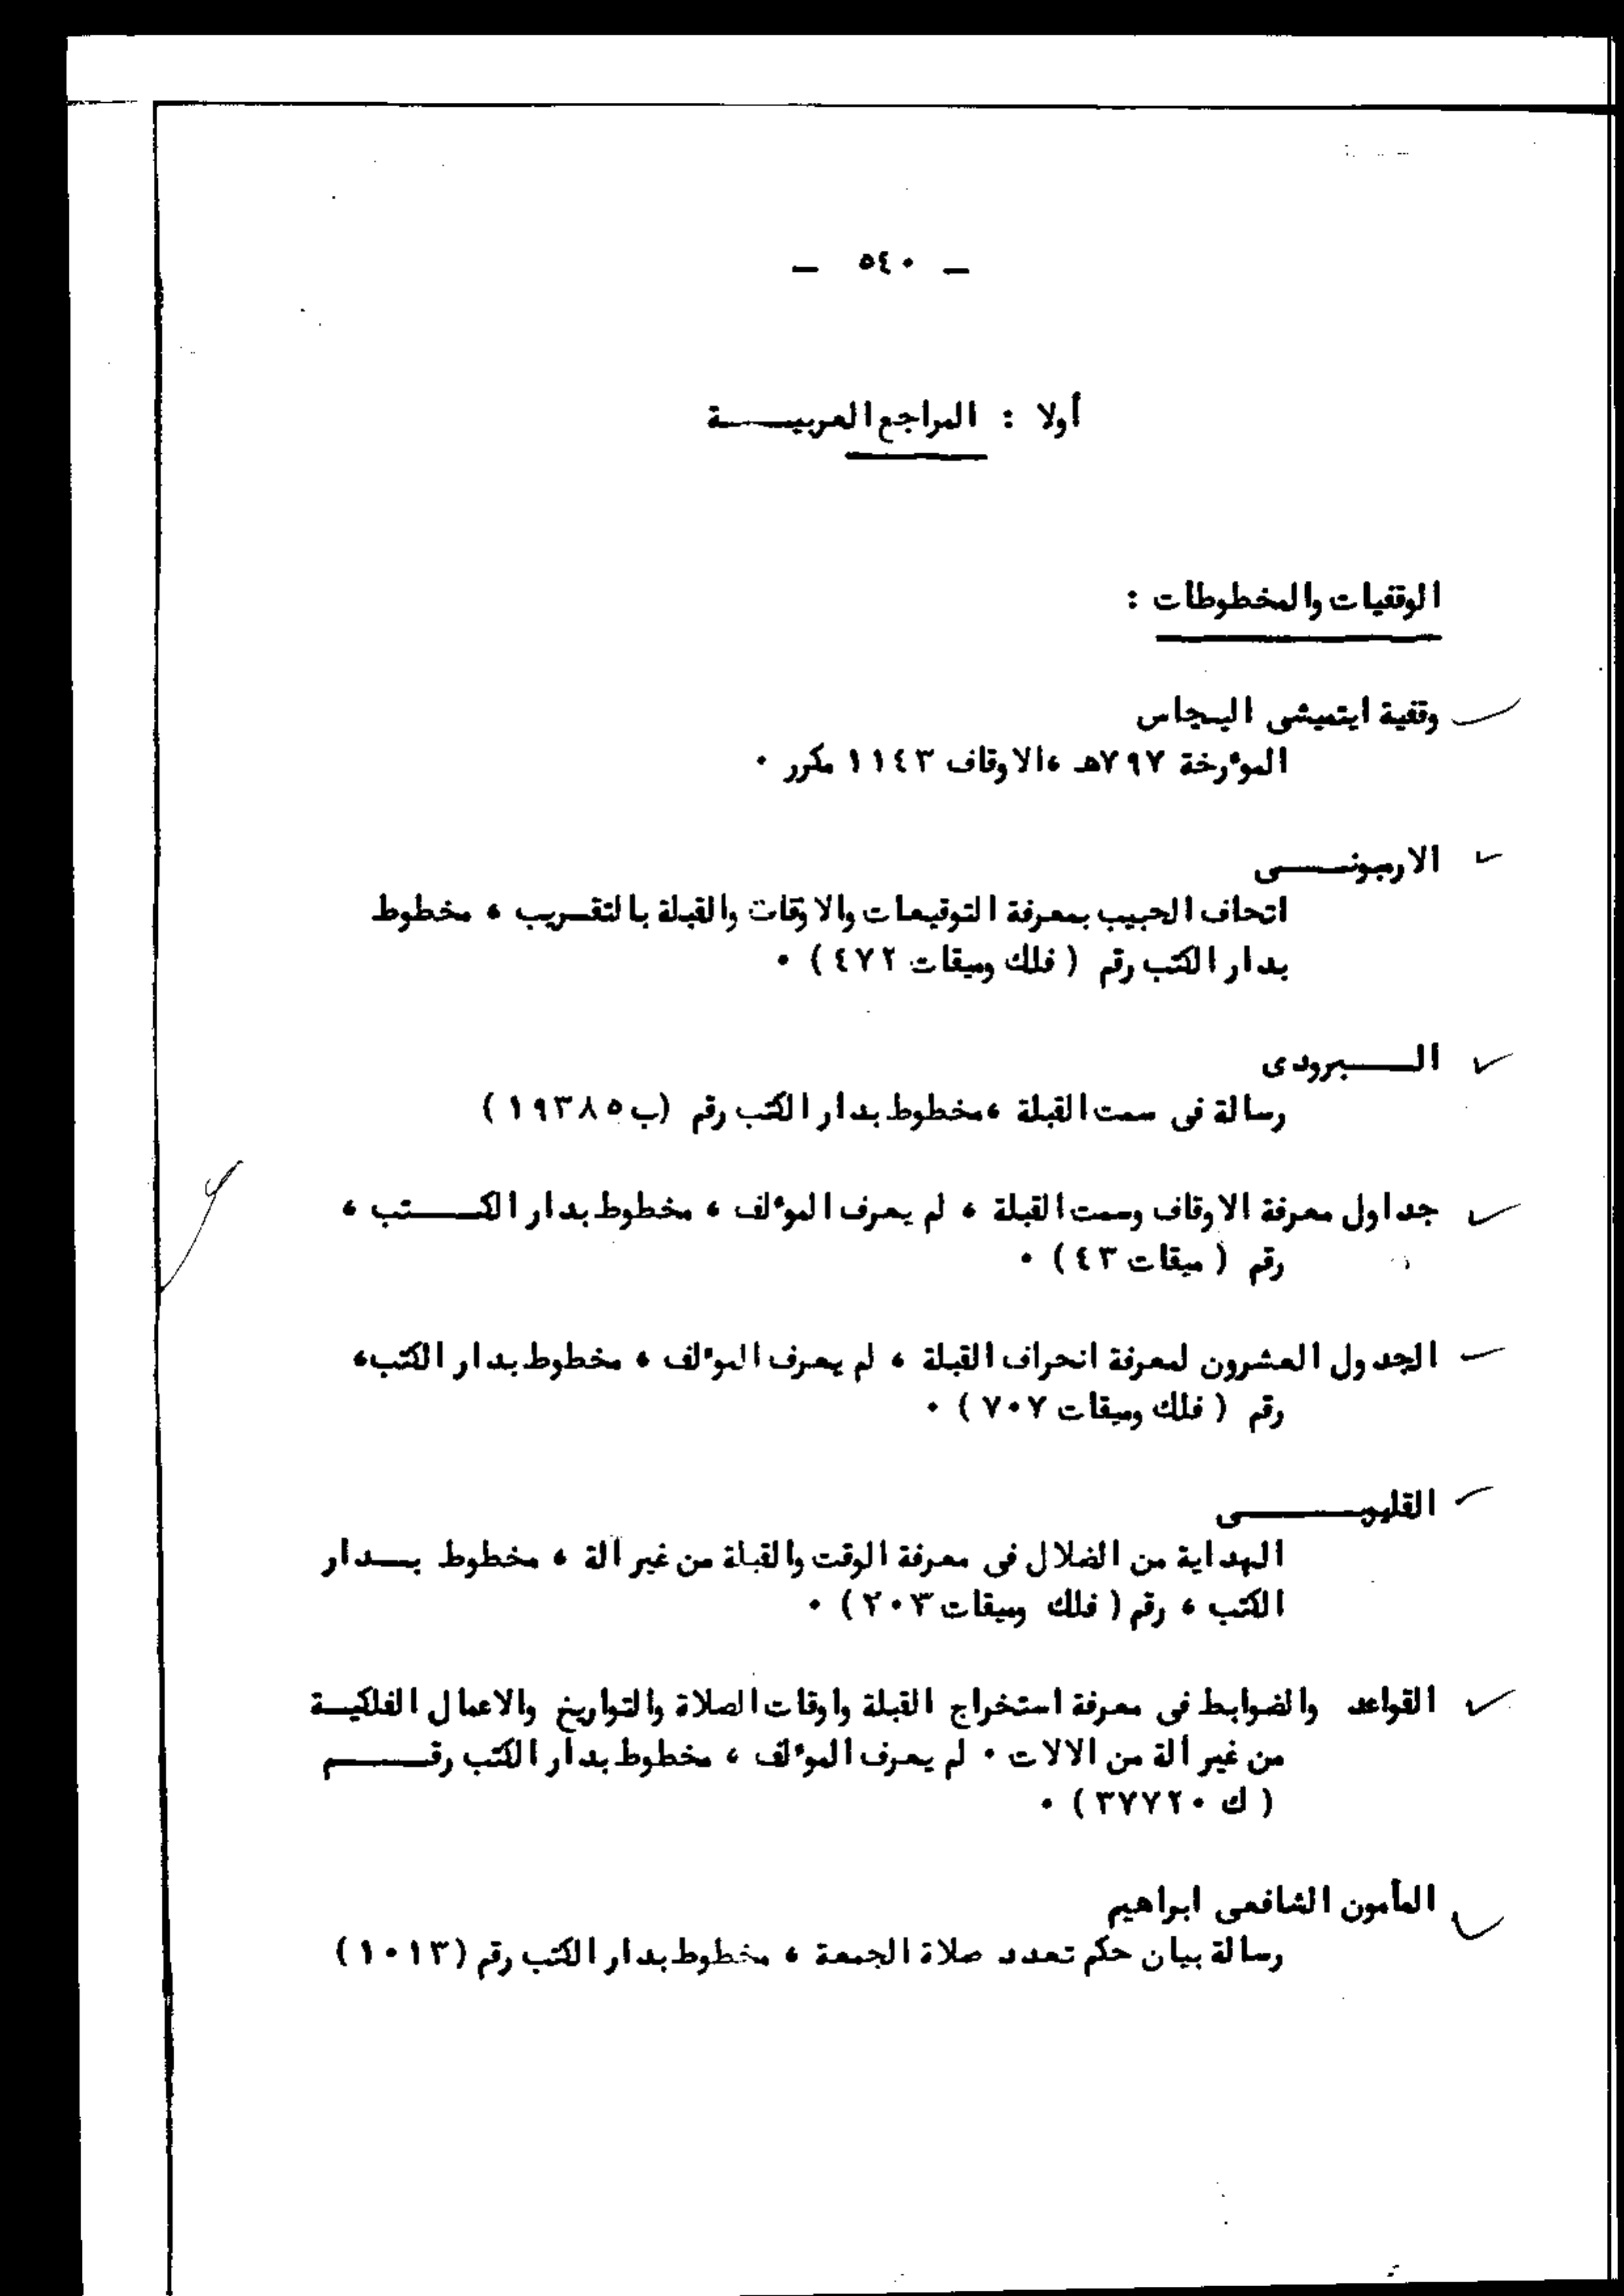 — ٥٤٠ —
أولا : المراجع العربيـــــة
الوقفيات والمخطوطات :
وقفية ايتميشى البجاس
المؤرخة ٧٩٧هـ ، الاوقاف ١١٤٣ مكرر ٠
الاربونـــــى
اتحاف الحبيب بمعرفة التوقيعات والاوقات والقبلة بالتقـريب ، مخطوط
بدار الكتب رقم ( فلك وميقات ٤٧٢ ) ٠
الـــــبرودى
رسالة فى سمت القبلة ، مخطوط بدار الكتب رقم (ب ١٩٣٨٥ )
جداول معرفة الاوقاف وسمت القبلة ، لم يعرف المؤلف ، مخطوط بدار الكـــتب ،
رقم ( ميقات ٤٣ ) ٠
الجدول العشرون لمعرفة انحراف القبلة ، لم يعرف المؤلف ، مخطوط بدار الكتب ،
رقم ( فلك وميقات ٧٠٧ ) ٠
القليوبـــــى
الهداية من الضلال فى معرفة الوقت والقبلة من غير آلة ، مخطوط بـــدار
الكتب ، رقم ( فلك وميقات ٢٠٣ ) ٠
القواعد والضوابط فى معرفة استخراج القبلة واوقات الصلاة والتواريخ والاعمال الفلكيـة
من غير آلة من الالات ٠ لم يعرف المؤلف ، مخطوط بدار الكتب رقـــــم
( ك ٣٧٧٢٠ ) ٠
المأمون الشافعى ابراهيم
رسالة بيان حكم تعدد صلاة الجمعة ، مخطوط بدار الكتب رقم (١٠١٣ )